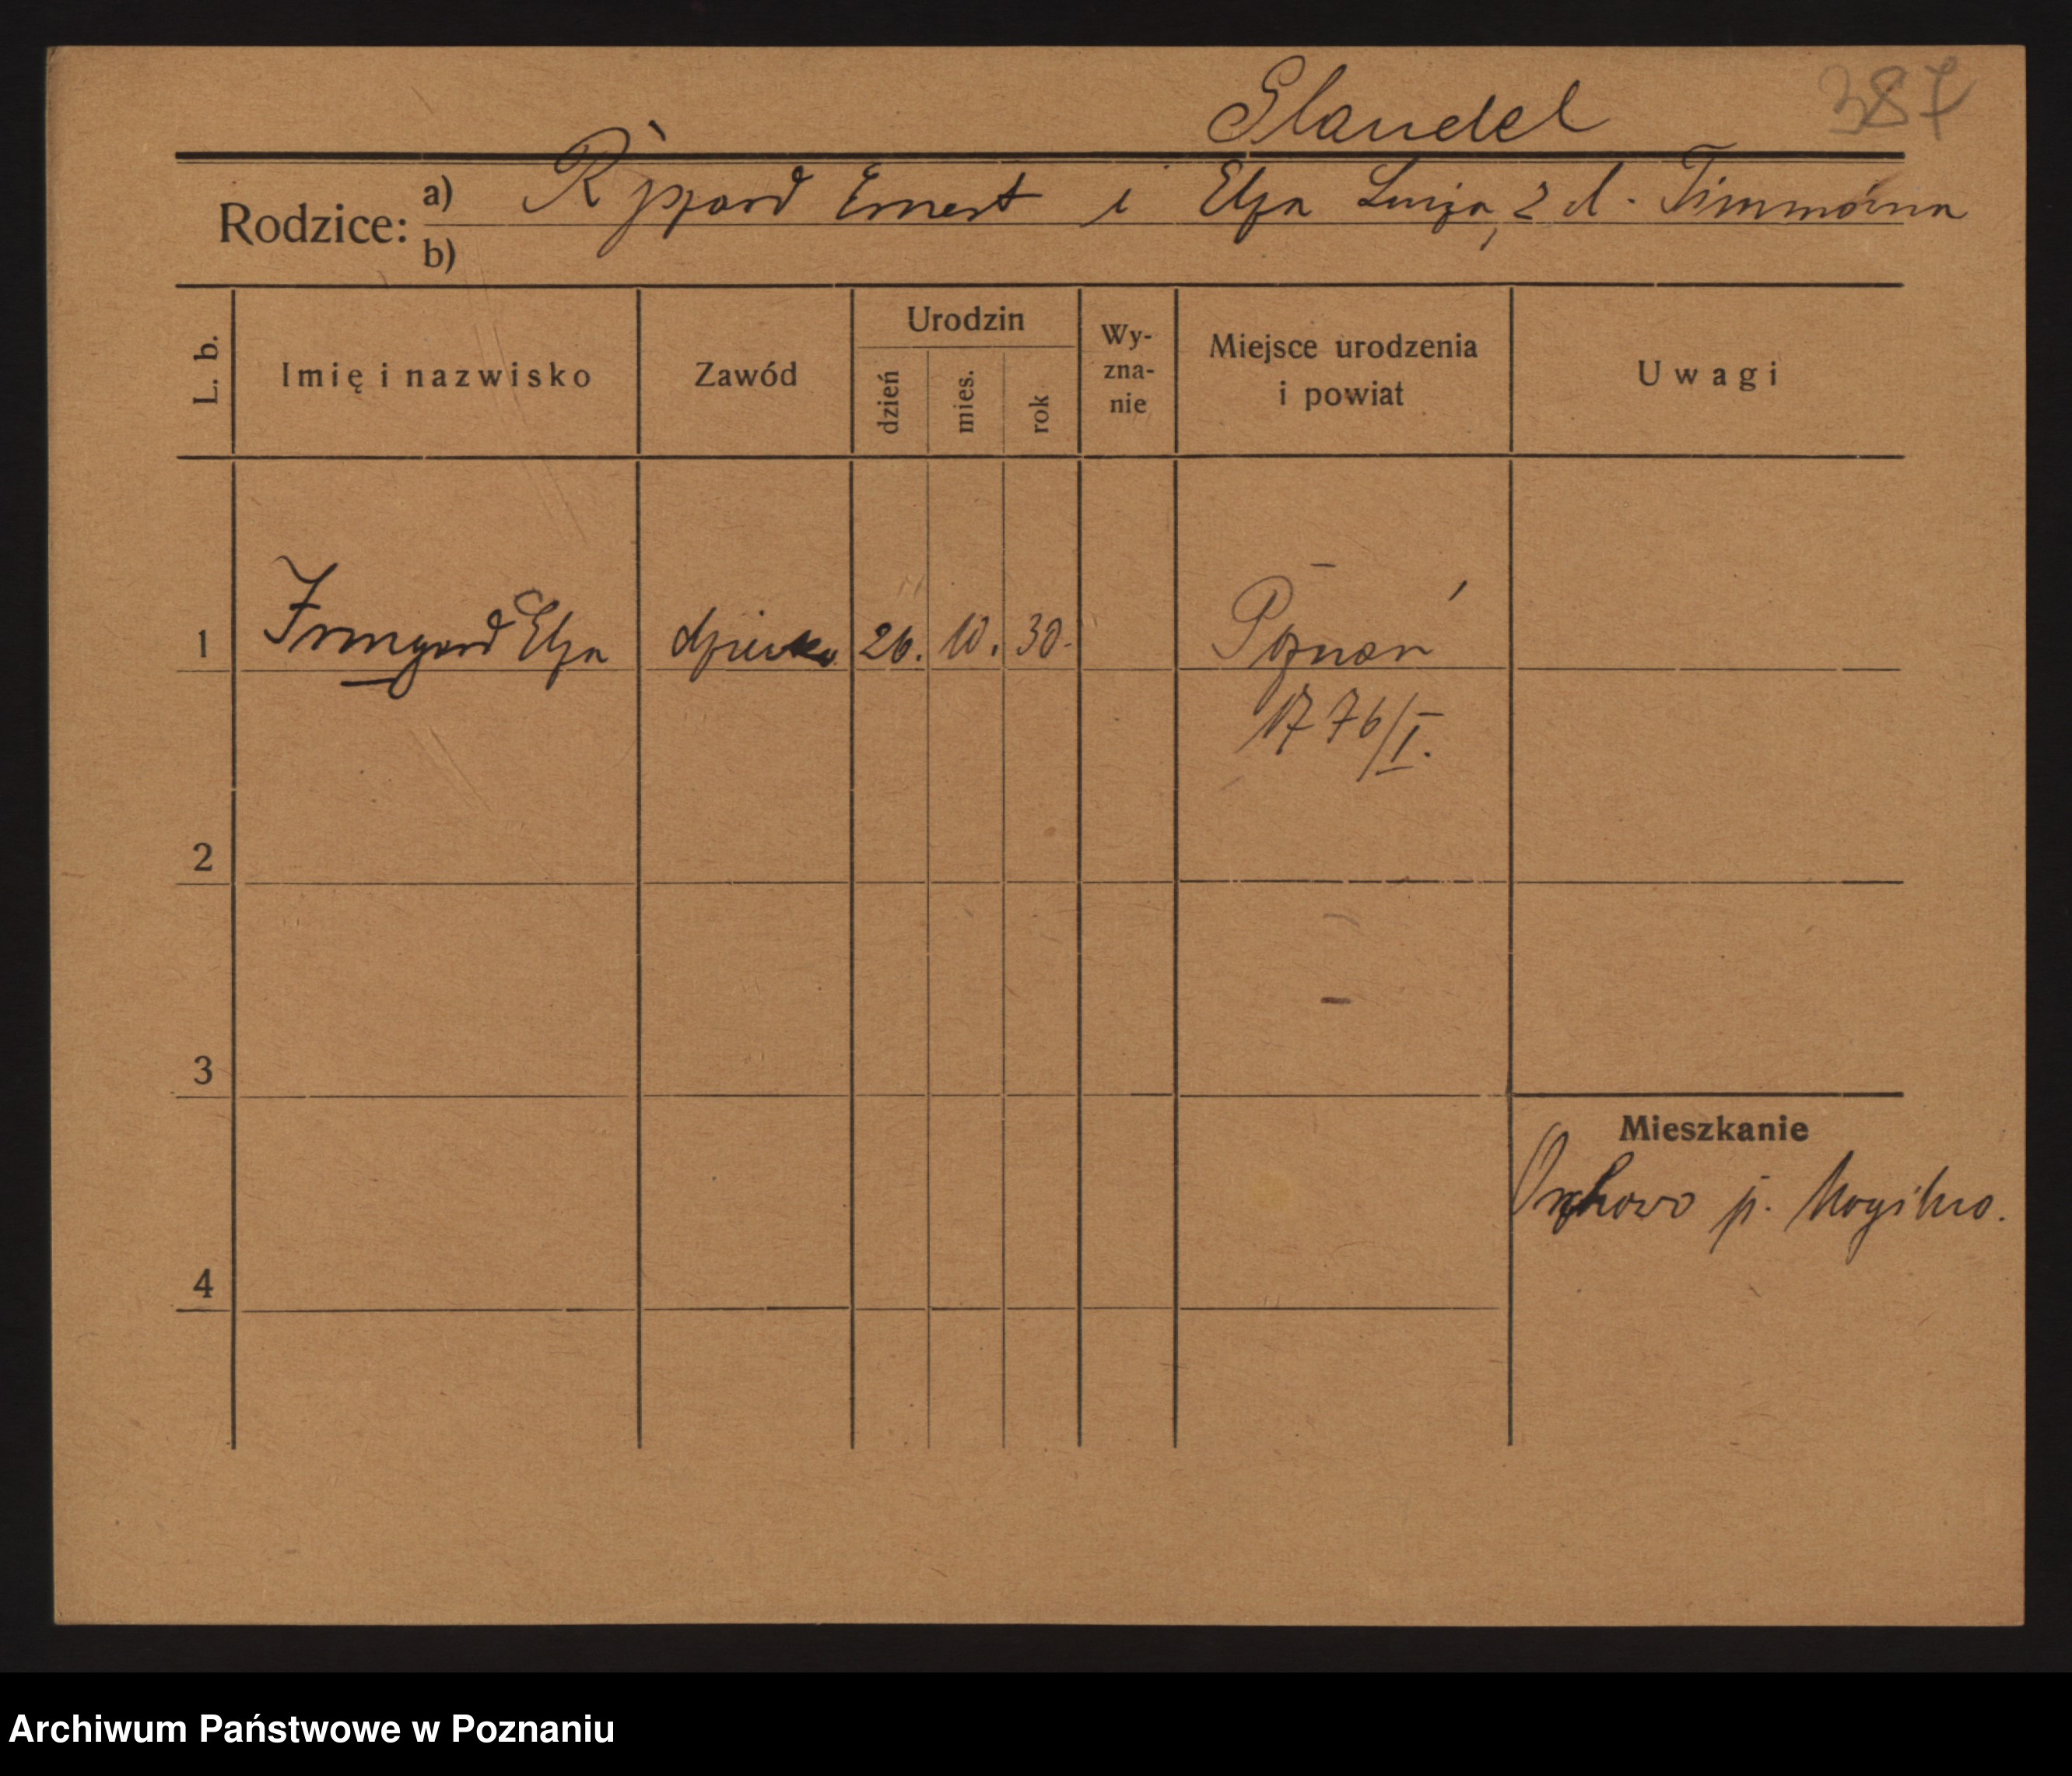 387
Glaudel
Rodzice: a) Ryszard Ernest i Elza Luiza, z d. Timmówna
b)
L. b. Imię i nazwisko Zawód Urodzin dzień mies. rok Wy-zna-nie Miejsce urodzenia i powiat Uwagi
1 Irmgard Elza dziecko 26. 10. 30. Poznań
1776/I.
2
3
Mieszkanie
Orchowo p. Mogilno.
4
Archiwum Państwowe w Poznaniu